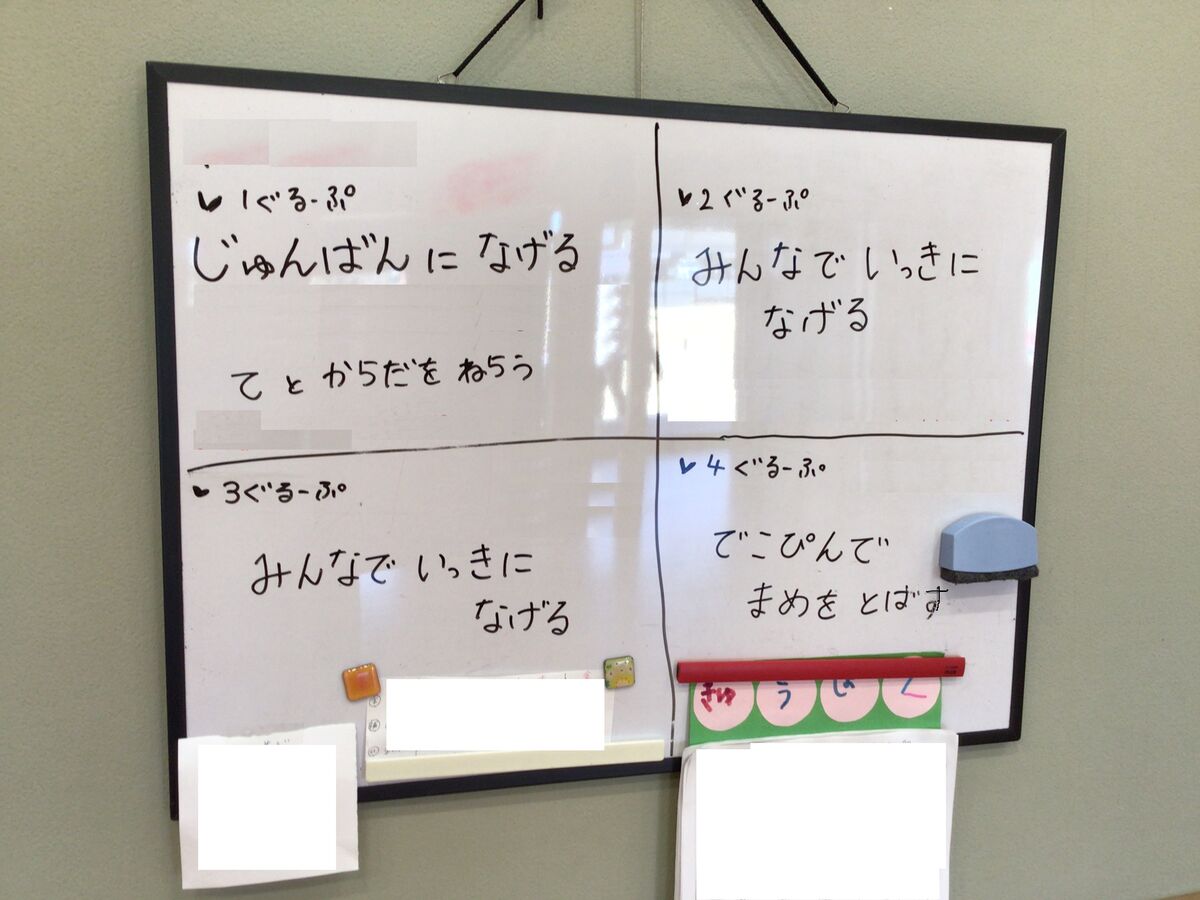 1ぐるーぷ
じゅんばんに なげる
て と からだを ねらう
2ぐるーぷ
みんなで いっきに
なげる
3ぐるーぷ
みんなで いっきに
なげる
4ぐるーぷ
でこぴんで
まめを とばす
きゅうしょく